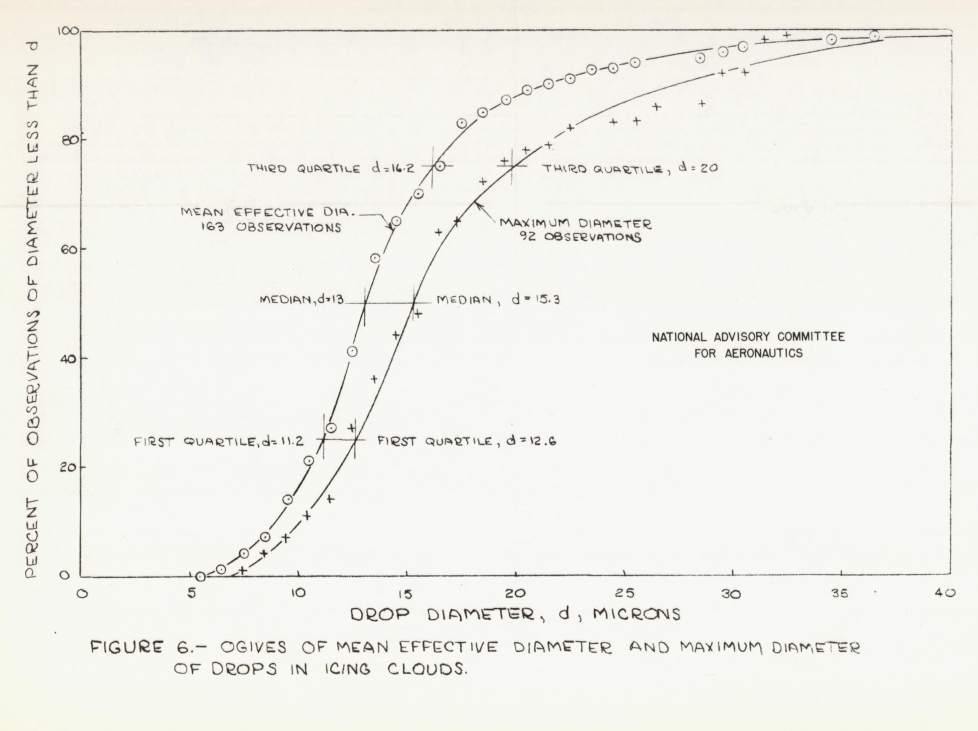 PERCENT OF OBSERVATIONS OF DIAMETER LESS THAN d
100
80
60
40
20
0
THIRD QUARTILE d=16.2
THIRD QUARTILE, d=20
MEAN EFFECTIVE DIA.
163 OBSERVATIONS
MAXIMUM DIAMETER
92 OBSERVATIONS
MEDIAN, d=13
MEDIAN, d=15.3
NATIONAL ADVISORY COMMITTEE
FOR AERONAUTICS
FIRST QUARTILE, d=11.2
FIRST QUARTILE, d=12.6
0 5 10 15 20 25 30 35 40
DROP DIAMETER, d, MICRONS
FIGURE 6.- OGIVES OF MEAN EFFECTIVE DIAMETER AND MAXIMUM DIAMETER
OF DROPS IN ICING CLOUDS.